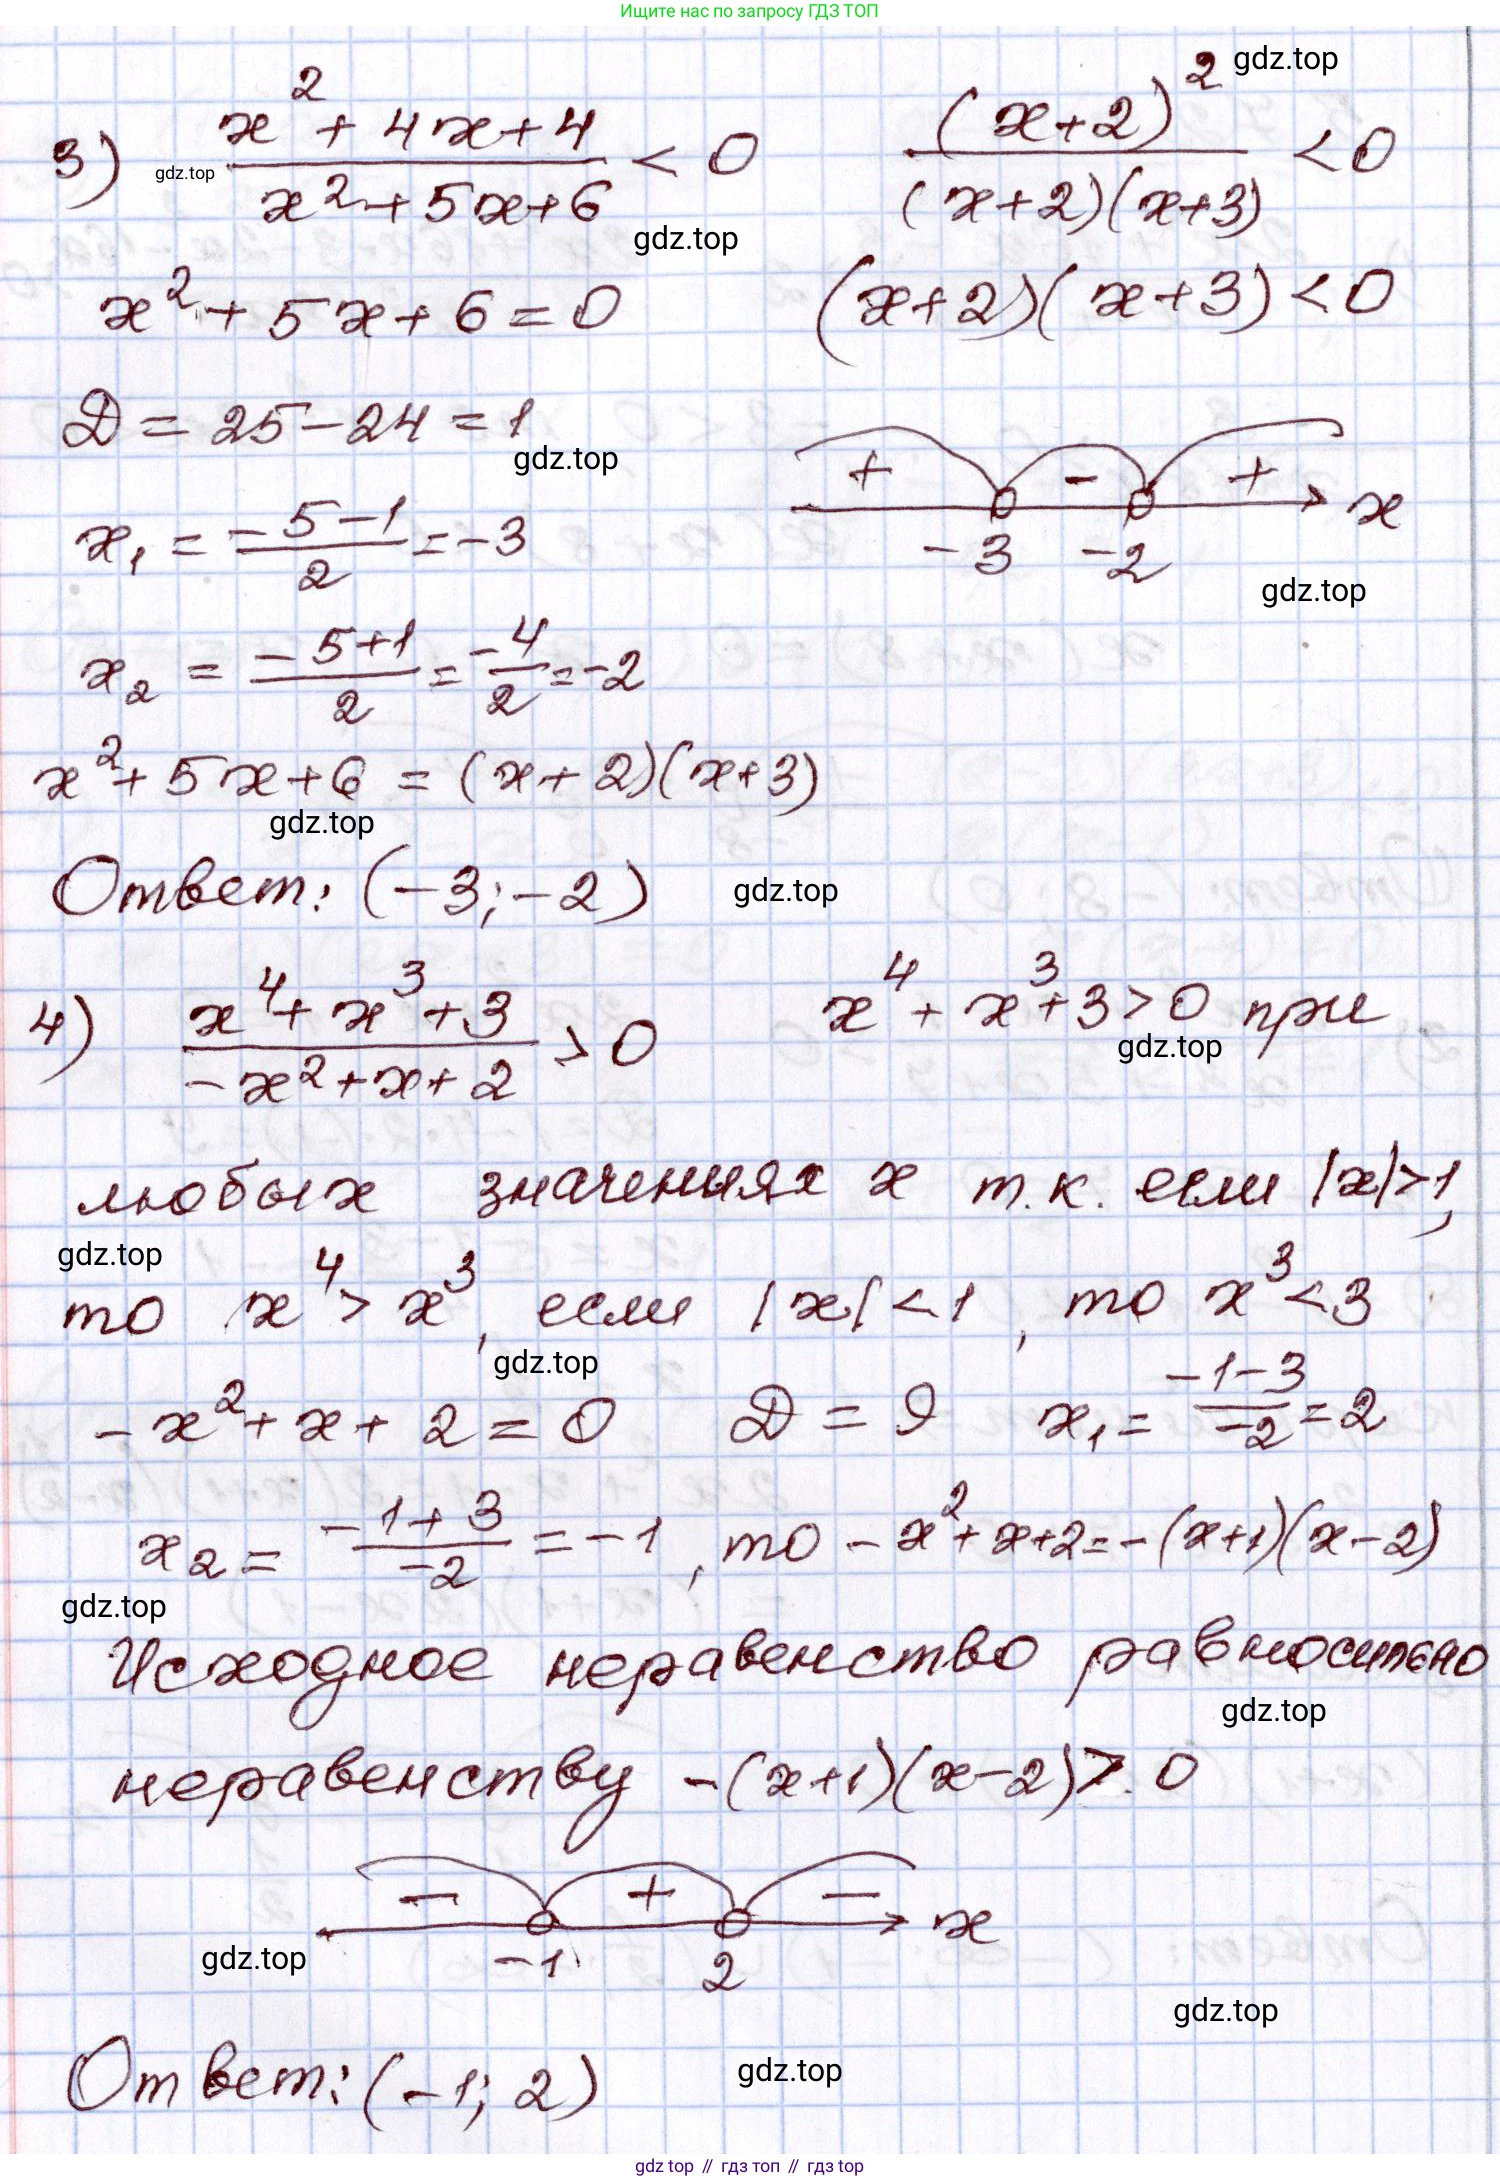 Ищите нас по запросу ГДЗ ТОП
gdz.top
3) (x² + 4x + 4)/(x² + 5x + 6) < 0    (x+2)²/((x+2)(x+3)) < 0
gdz.top
gdz.top
x² + 5x + 6 = 0    (x+2)(x+3) < 0
Д = 25 - 24 = 1
gdz.top
+ - + x
-3 -2
x₁ = (-5-1)/2 = -3
gdz.top
x₂ = (-5+1)/2 = -4/2 = -2
x² + 5x + 6 = (x+2)(x+3)
gdz.top
Ответ: (-3; -2)
gdz.top
4) (x⁴ + x³ + 3)/(-x² + x + 2) > 0    x⁴ + x³ + 3 > 0 при
gdz.top
любых значениях x т.к. если |x| > 1,
gdz.top
то x⁴ > x³, если |x| < 1, то x³ < 3
gdz.top
-x² + x + 2 = 0    Д = 9    x₁ = (-1-3)/-2 = 2
x₂ = (-1+3)/-2 = -1, то -x² + x + 2 = -(x+1)(x-2)
gdz.top
Исходное неравенство равносильно
gdz.top
неравенству -(x+1)(x-2) > 0
- + - x
gdz.top
-1 2
gdz.top
Ответ: (-1; 2)
gdz.top
gdz top // гдз топ // гдз top